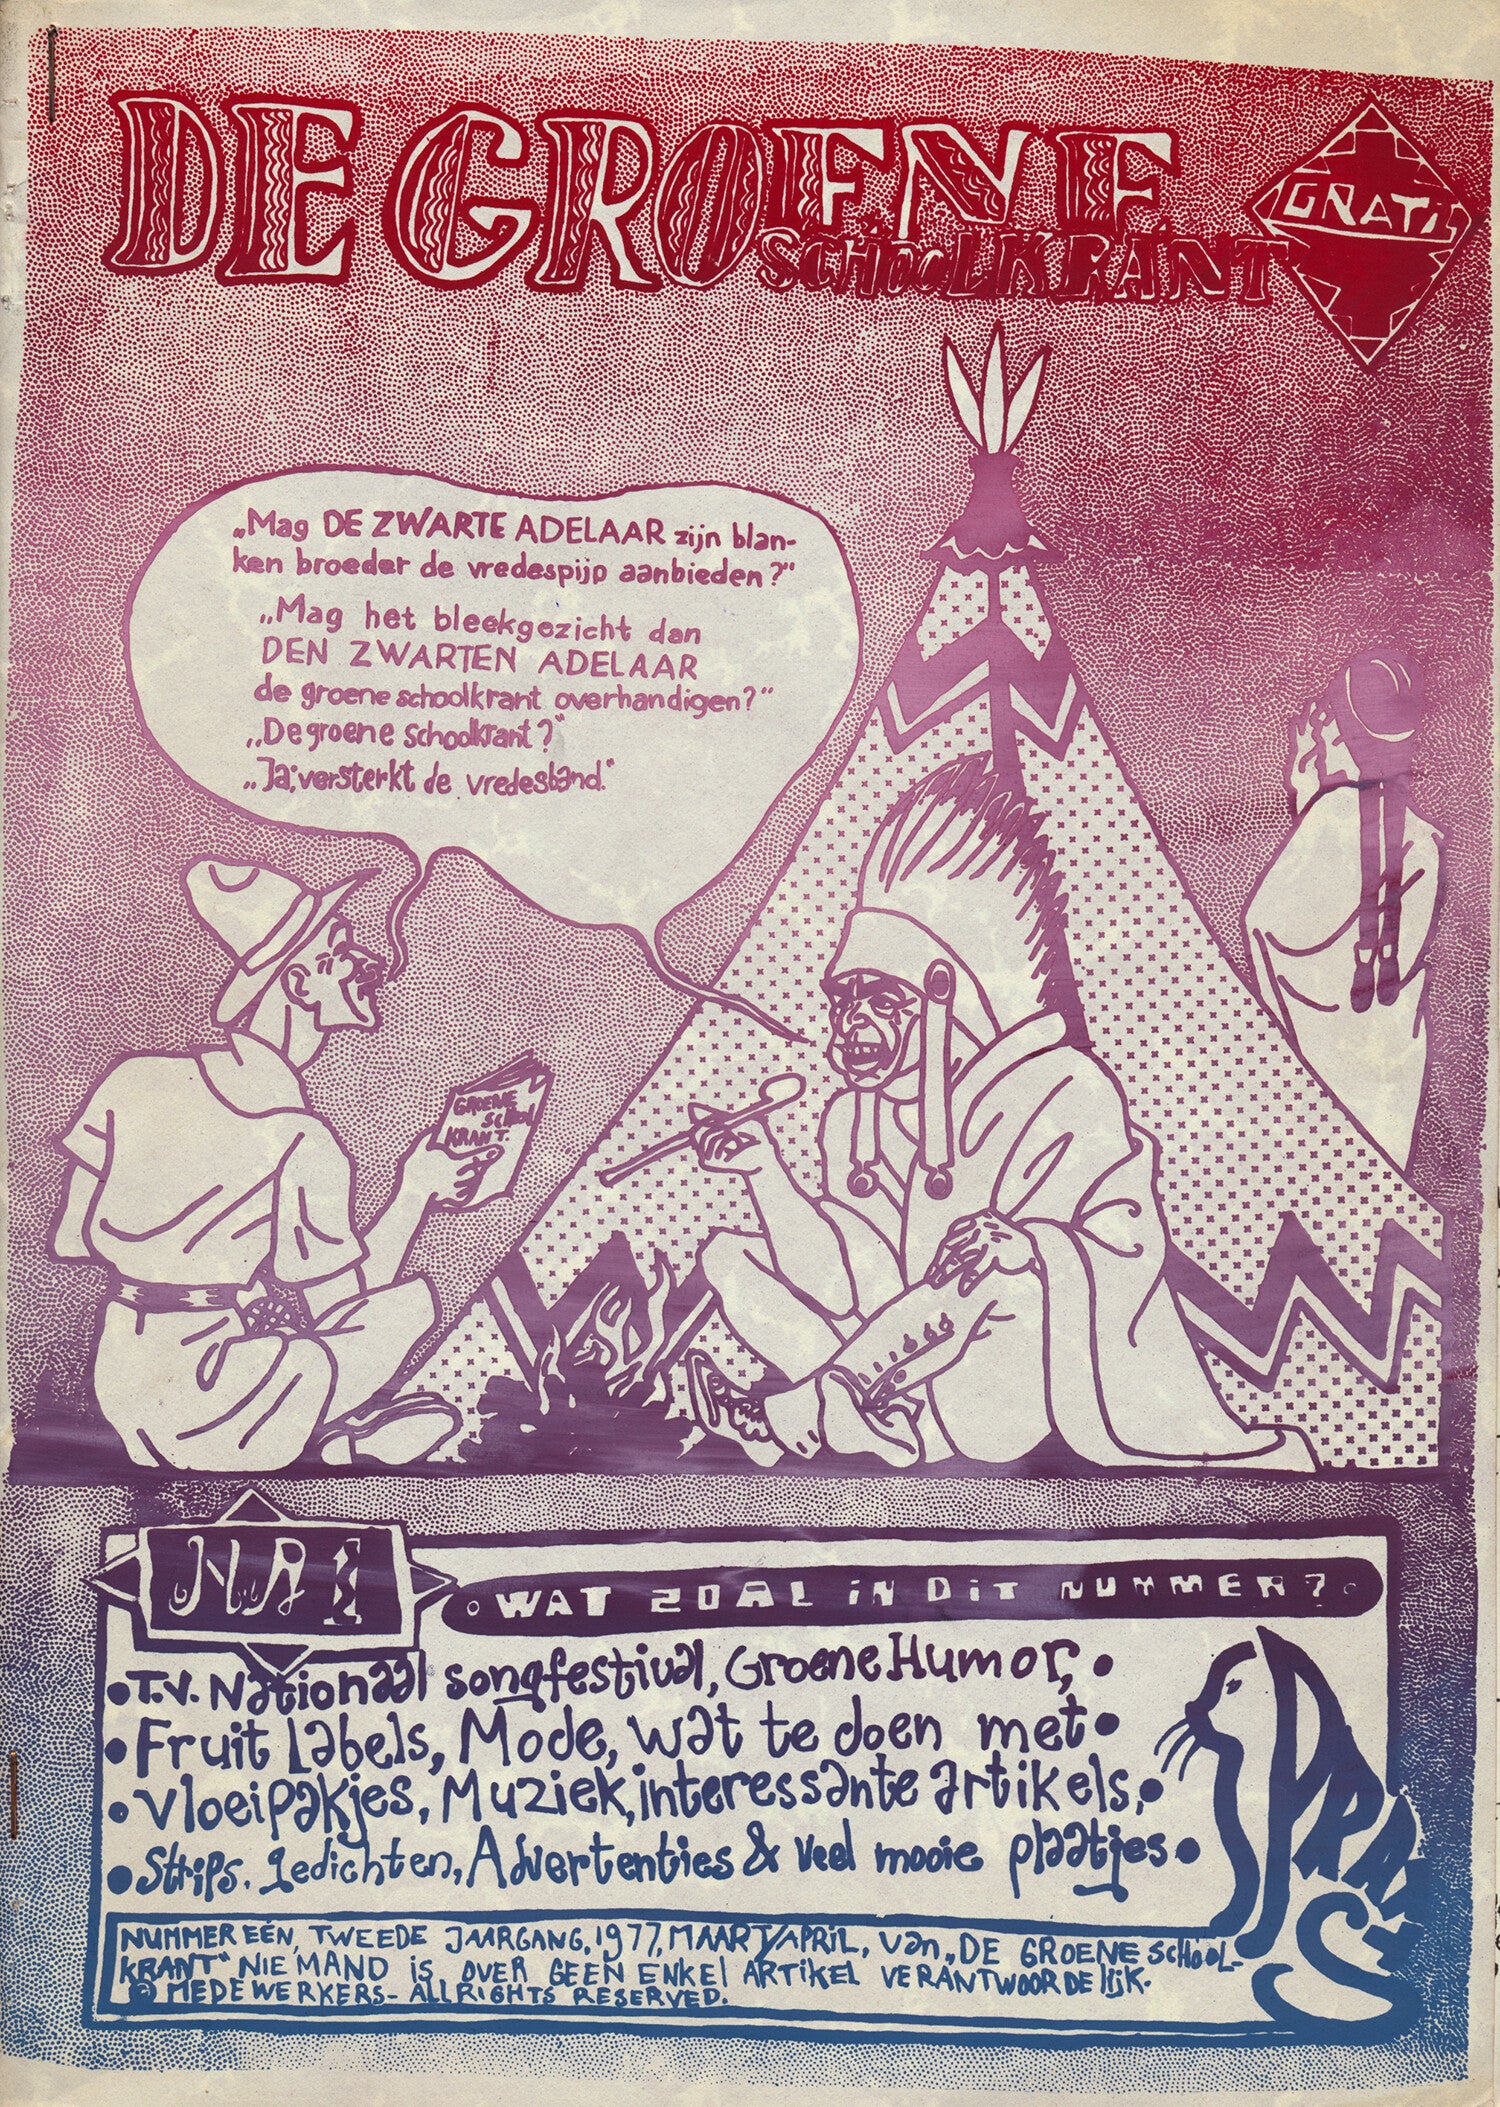 DE GROENE
SCHOOLKRANT
GRATIS
„Mag DE ZWARTE ADELAAR zijn blan-
ken broeder de vredespijp aanbieden?"
„Mag het bleekgezicht dan
DEN ZWARTEN ADELAAR
de groene schoolkrant overhandigen?"
„De groene schoolkrant?"
„Ja; versterkt de vredesband."
GROENE
SCHOOL
KRANT.
NR 1
WAT ZOAL in DiT NUMMER?
• T.V. Nationaal songfestival, Groene Humor, •
• Fruit labels, Mode, wat te doen met •
• vloeipakjes, Muziek, interessante artikels, •
• Strips, gedichten, Advertenties & veel mooie plaatjes •
NUMMER EÉN, TWEEDE JAARGANG, 1977, MAART/APRIL, van „DE GROENE SCHOOL-
KRANT" NIEMAND is OVER GEEN ENKEL ARTIKEL VERANTWOORDELIJK.
© MEDEWERKERS - ALL RIGHTS RESERVED.